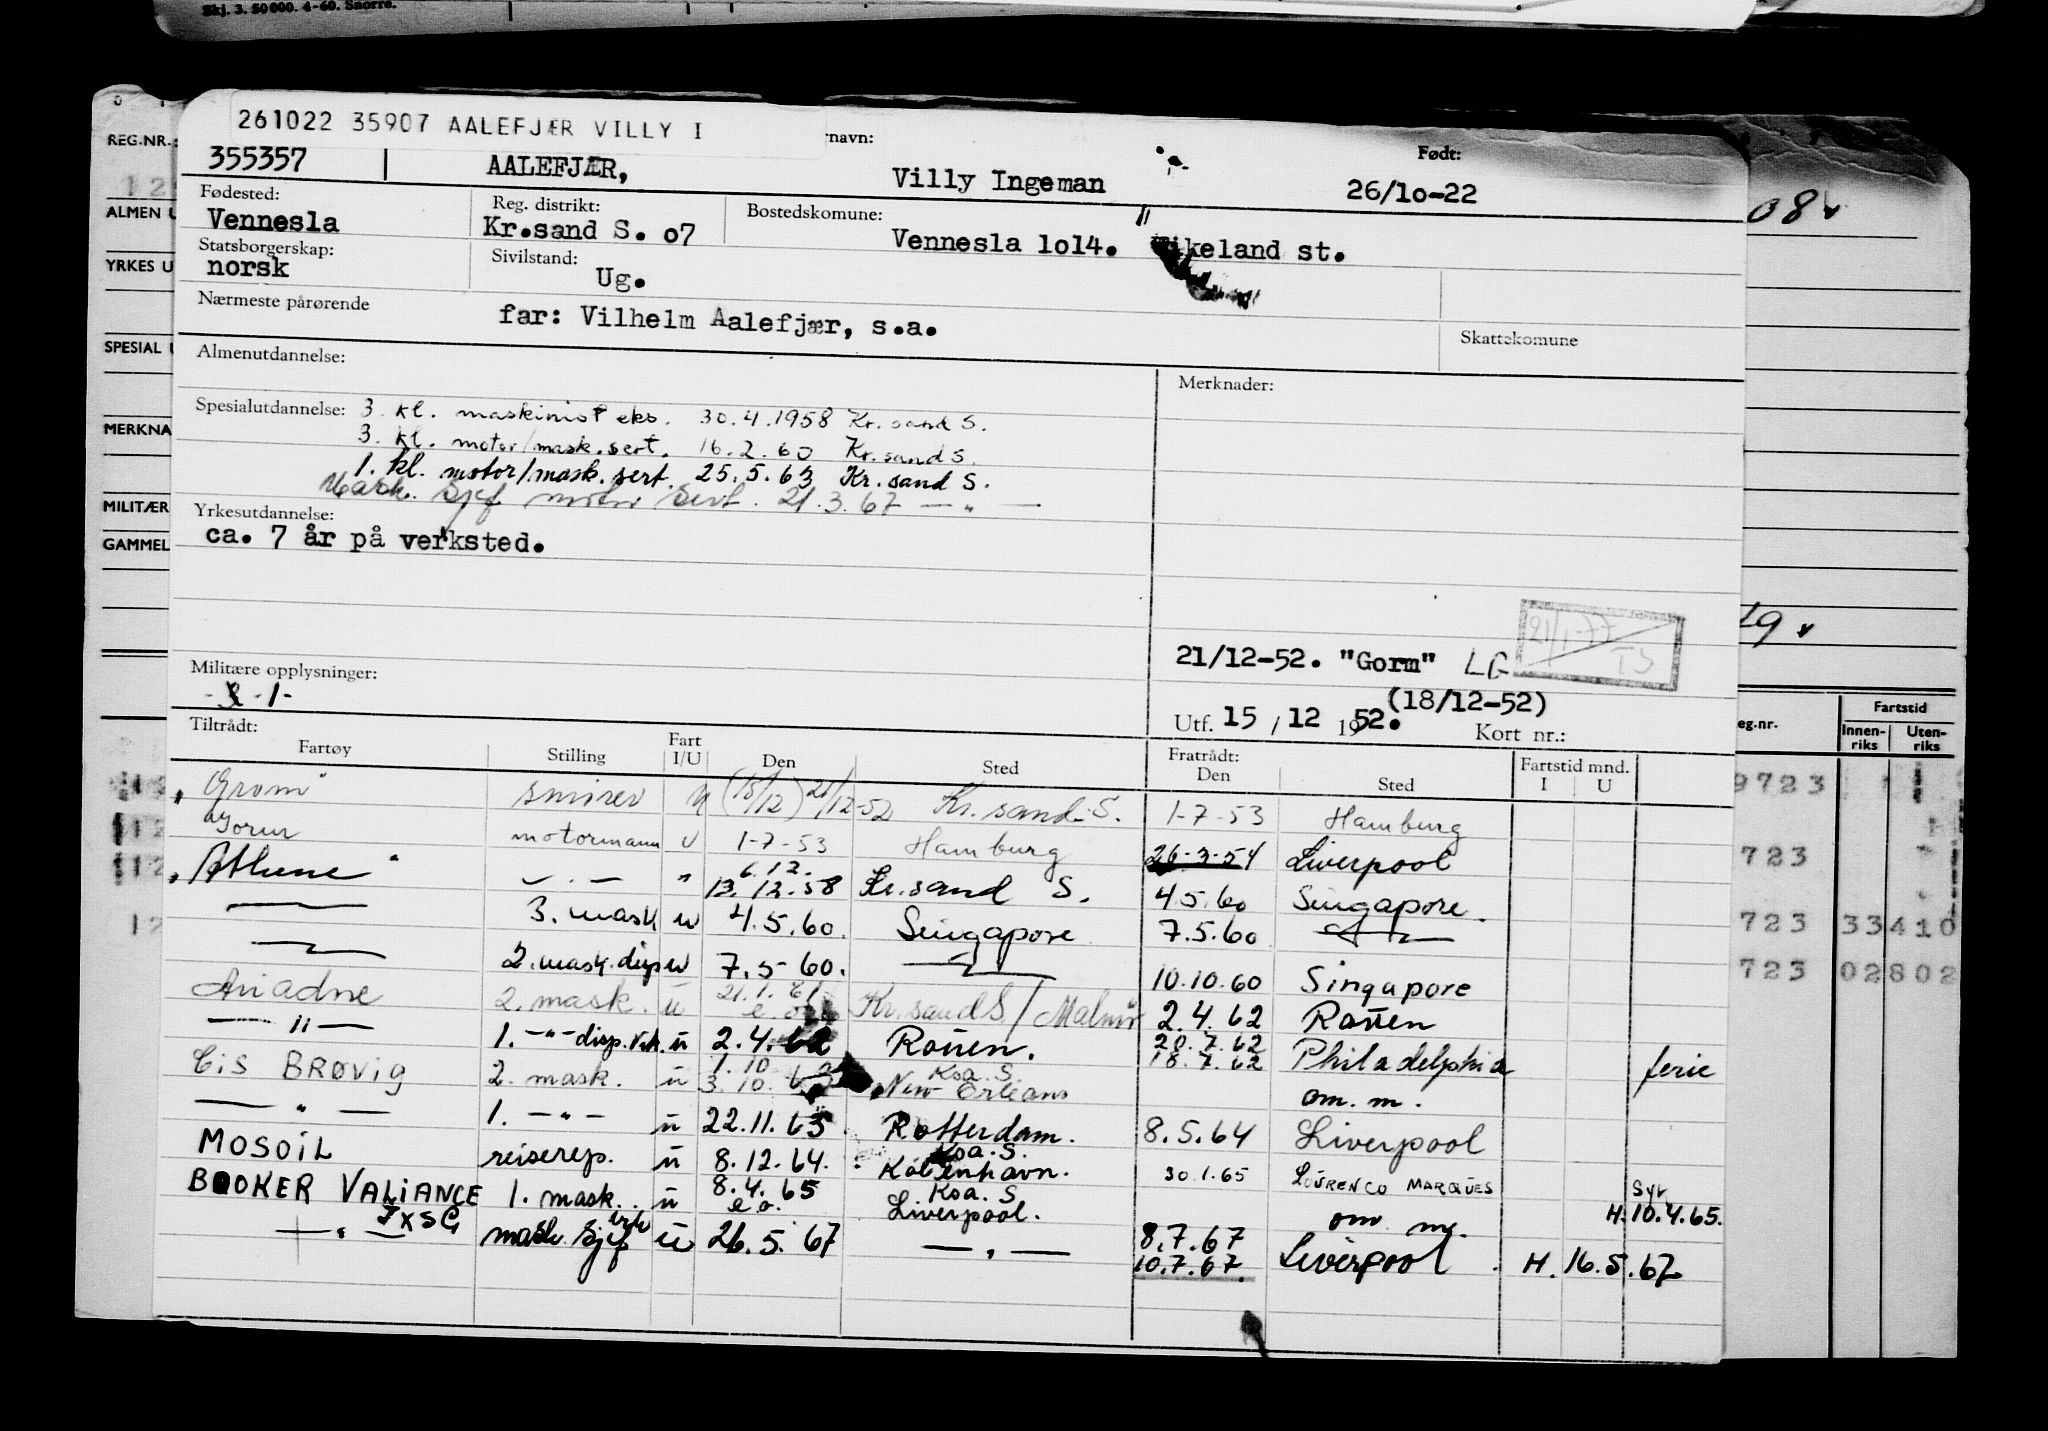 Skj. 3. 50 000. 4-60. Snorre.
261022 35907 AALEFJÆR VILLY I
REG.NR.:
rnavn:
Født:
355357 AALEFJÆR, Villy Ingeman 26/10-22
Fødested: Reg. distrikt: Bostedskomune:
Vennesla Kr.sand S. o7 Vennesla 1o14. Vikeland st.
ALMEN U
08
Statsborgerskap: Sivilstand:
norsk Ug.
YRKES U
Nærmeste pårørende
far: Vilhelm Aalefjær, s.a.
Skattekomune
SPESIAL
Almenutdannelse:
Merknader:
Spesialutdannelse: 3. kl. maskinist eks. 30.4.1958 Kr.sand S.
MERKNA
3. kl. motor/mask.sert. 16.2.60 Kr.sand S.
1. kl. motor/mask.sert. 25.5.63 Kr.sand S.
Mask. Sjef motor Sert. 21.3.67 — " —
MILITÆR
Yrkesutdannelse:
ca. 7 år på verksted.
GAMMEL
21/1-77
TS
19
21/12-52. "Gorm" LG
Militære opplysninger:
-1-
(18/12-52)
Utf. 15 / 12 1952. Kort nr.:
Tiltrådt:
Fartøy Stilling Fart I/U Den Sted Fratrådt: Den Sted Fartstid mnd. I U
eg.nr. Fartstid Innen-riks Uten-riks
"Grom" smører u (18/12) 21/12-52 Kr.sand.S. 1-7-53 Hamburg
9723
Gorm motormann u 1-7-53 Hamburg 26-3-54 Liverpool
723
"Athene" — " — " 6.12. 13.12.58 Kr.sand S. 4.5.60 Singapore.
— " — 3. mask u 4.5.60. Singapore 7.5.60 — " —
723 33410
— " — 2. mask.disp u 7.5-60. — " — 10.10.60 Singapore
723 02802
Ariadne 2. mask. ü 21.1.61 e.o. Kr.sand S./Malmö 2.4.62 Rouen
— " — 1. —"— disp. ü 2.4.62 Rouen. 20.7.62 18.7.62 Philadelphia ferie
Cis BRØVIG 2. mask. ü 1.10 3.10.62 Ksa. S. New Orleans om. m.
— " — 1. —"— ü 22.11.63 Rotterdam. 8.5.64 Liverpool
MOSOIL reiserep. ü 8.12.64. Ksa. S. København. 30.1.65 LOURENCO MARQUES
BOOKER VALIANCE 1. mask. ü 8.4.65 e.o. Ksa. S Liverpool. om m. Syk H. 10.4.65.
— " — FXSG mask sjef ü 26.5.67 — " — 8.7.67 10.7.67. Liverpool. H. 16.5.67